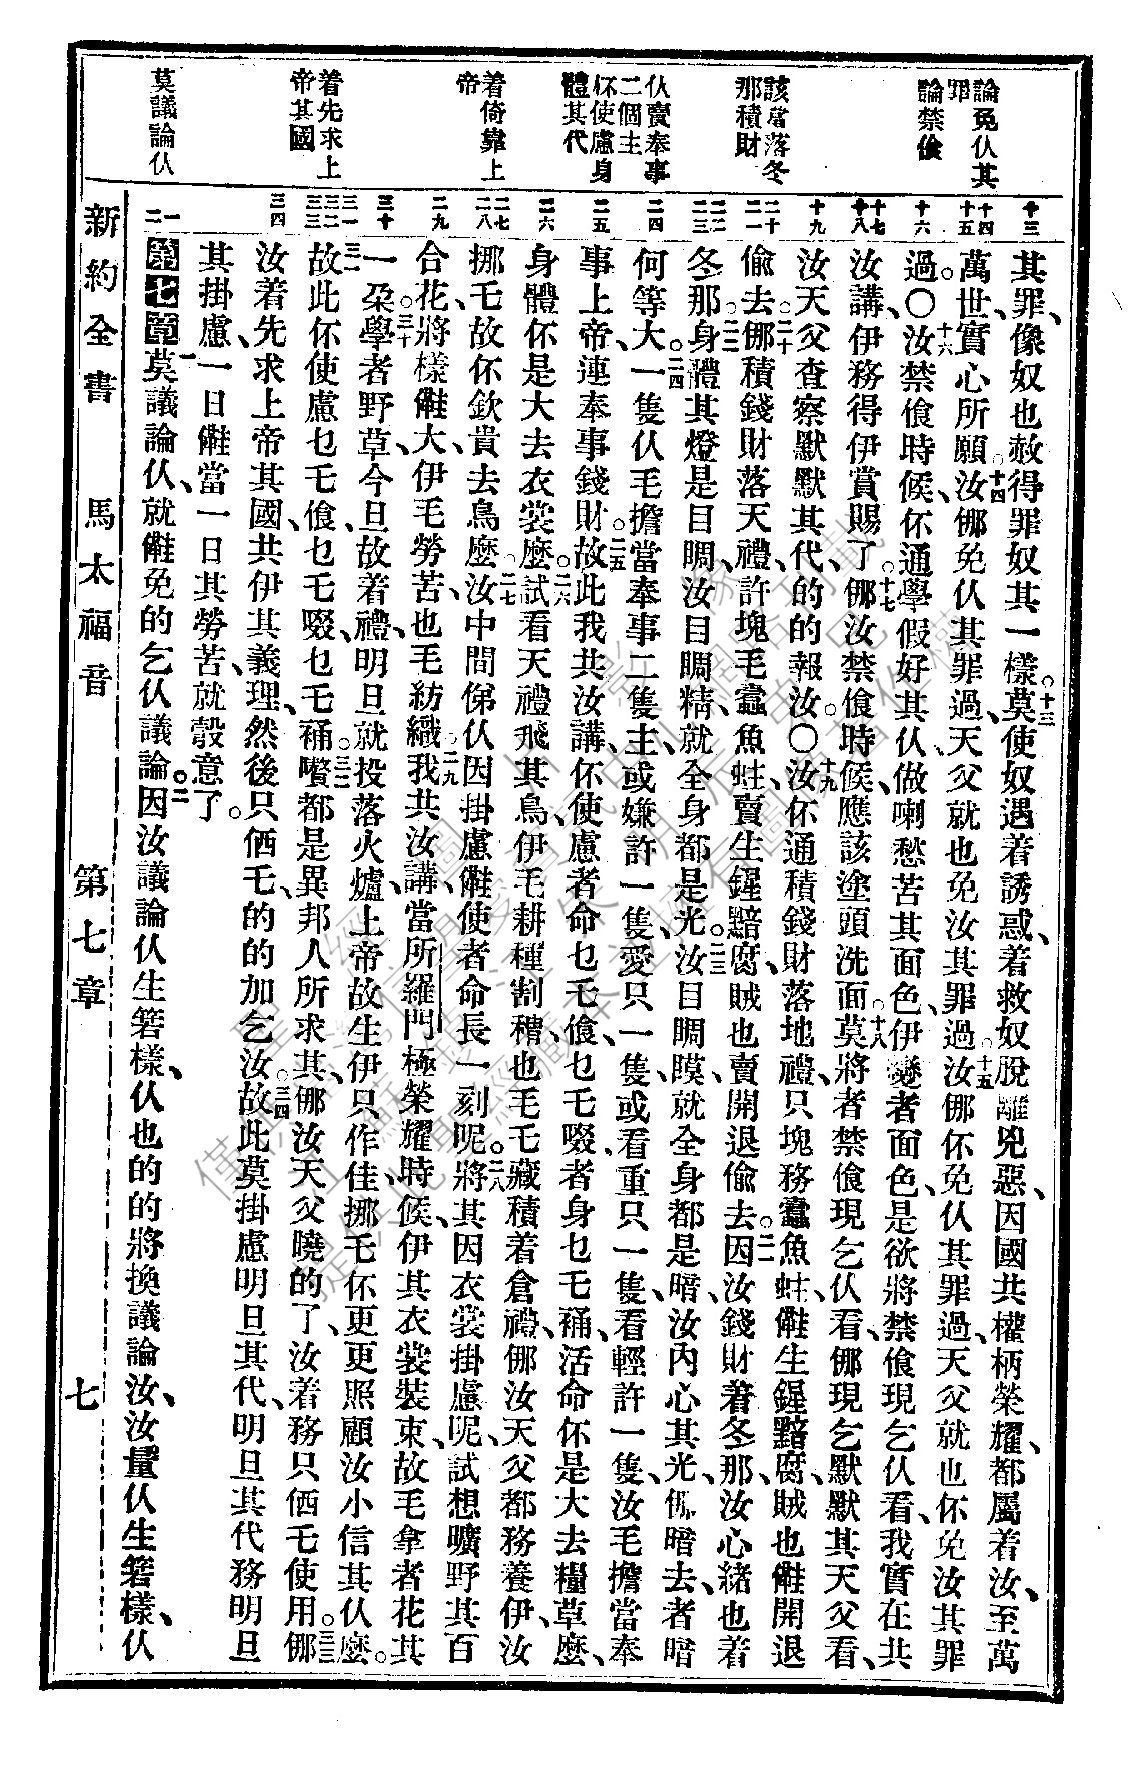 論免仫其
罪
論禁飡
該當落冬
那積財
仫賣奉事
二個主
伓使慮身
體其代
着倚靠上
帝
着先求上
帝其國
莫議論仫
十三
十四
十五
十六
十七
十八
十九
二十
二一
二二
二三
二四
二五
二六
二七
二八
二九
三十
三一
三二
三三
三四
一
二
其罪、像奴也赦得罪奴其一樣。十三莫使奴遇着誘惑、着救奴脫離兇惡、因國共權柄榮耀、都屬着汝、至萬
萬世、實心所願。十四汝㑚免仫其罪過、天父就也免汝其罪過。十五汝㑚伓免仫其罪過、天父就也伓免汝其罪
過。〇十六汝禁飡時候、伓通學假好其仫、做喇愁苦其面色、伊變者面色、是欲將禁飡現乞仫看、我實在共
汝講、伊務得伊賞賜了。十七㑚汝禁飡時候、應該塗頭洗面。十八莫將者禁飡現乞仫看、㑚現乞默默其天父看、
汝天父查察默默其代、的的報汝。〇十九汝伓通積錢財落地禮、只塊務蠹魚蛀、㑽生鍟黯腐、賊也㑽開退
偷去。二十㑚積錢財落天禮、許塊毛蠹魚蛀、賣生鍟黯腐、賊也賣開退偷去。二一因汝錢財著冬那、汝心緒也着
冬那。二二身體其燈是目睭、汝目睭精、就全身都是光。二三汝目睭瞙、就全身都是暗、汝內心其光、㑚暗去、者暗
何等大。二四一隻仫毛擔當奉事二隻主、或嫌許一隻、愛只一隻、或看重只一隻、看輕許一隻、汝毛擔當奉
事上帝、連奉事錢財。二五故此我共汝講、伓使慮者命乜乇飡、乜乇啜、者身乜乇䘄、活命伓是大去糧草麽、
身體伓是大去衣裳麽。二六試看天禮飛其鳥、伊毛耕種割穧、也毛乇藏積着倉禮、㑚汝天父都務養伊、汝
挪乇故伓欽貴去鳥麽。二七汝中間俤仫因掛慮、㑽使者命長一刻呢。二八將其因衣裳掛慮呢、試想曠野其百
合花、將樣㑽大、伊毛勞苦、也毛紡織。二九我共汝講、當所羅門極榮耀時候、伊其衣裳裝束、故毛拿者花其
一朶。三十學者野草、今旦故着禮、明旦就投落火爐、上帝故生伊只作佳、挪乇伓更更照顧汝小信其仫麽。
三一故此伓使慮乜乇飡、乜乇啜、乜乇䘄。三二嚽都是異邦人所求其、㑚汝天父曉的了、汝着務只仴乇使用。三三㑚
汝着先求上帝其國、共伊其義理、然後只仴乇、的的加乞汝。三四故此莫掛慮明旦其代、明旦其代務明旦
其掛慮、一日㑽當一日其勞苦、就彀意了。
第七章一莫議論仫、就㑽免的乞仫議論。二因汝議論仫生箬樣、仫也的的將換議論汝、汝量仫生箬樣、仫
新約全書　馬太福音　第七章　七